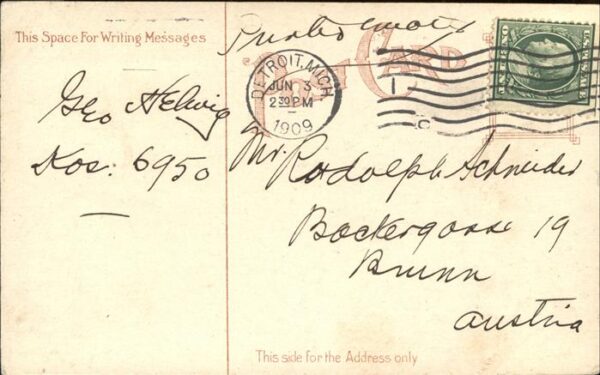 Printed matter
This Space For Writing Messages
POST CARD
DETROIT, MICH.
JUN 3
2 30 PM
1909
Geo Helwig
Kos: 6950
Mr. Rodolph Schneider
Backergasse 19
Brunn
Austria
This side for the Address only